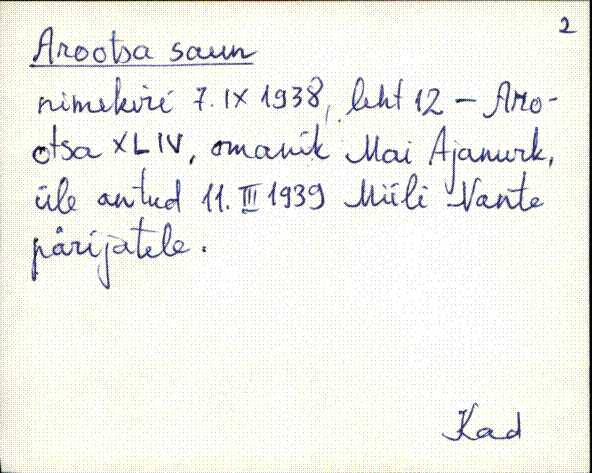 2
Arootsa saun
nimekiri 7. IX 1938, leht 12 – Aro-
otsa XLIV, omanik Mai Ajanurk,
üle antud 11. III 1939 Miili Nante
pärijatele.
Kad